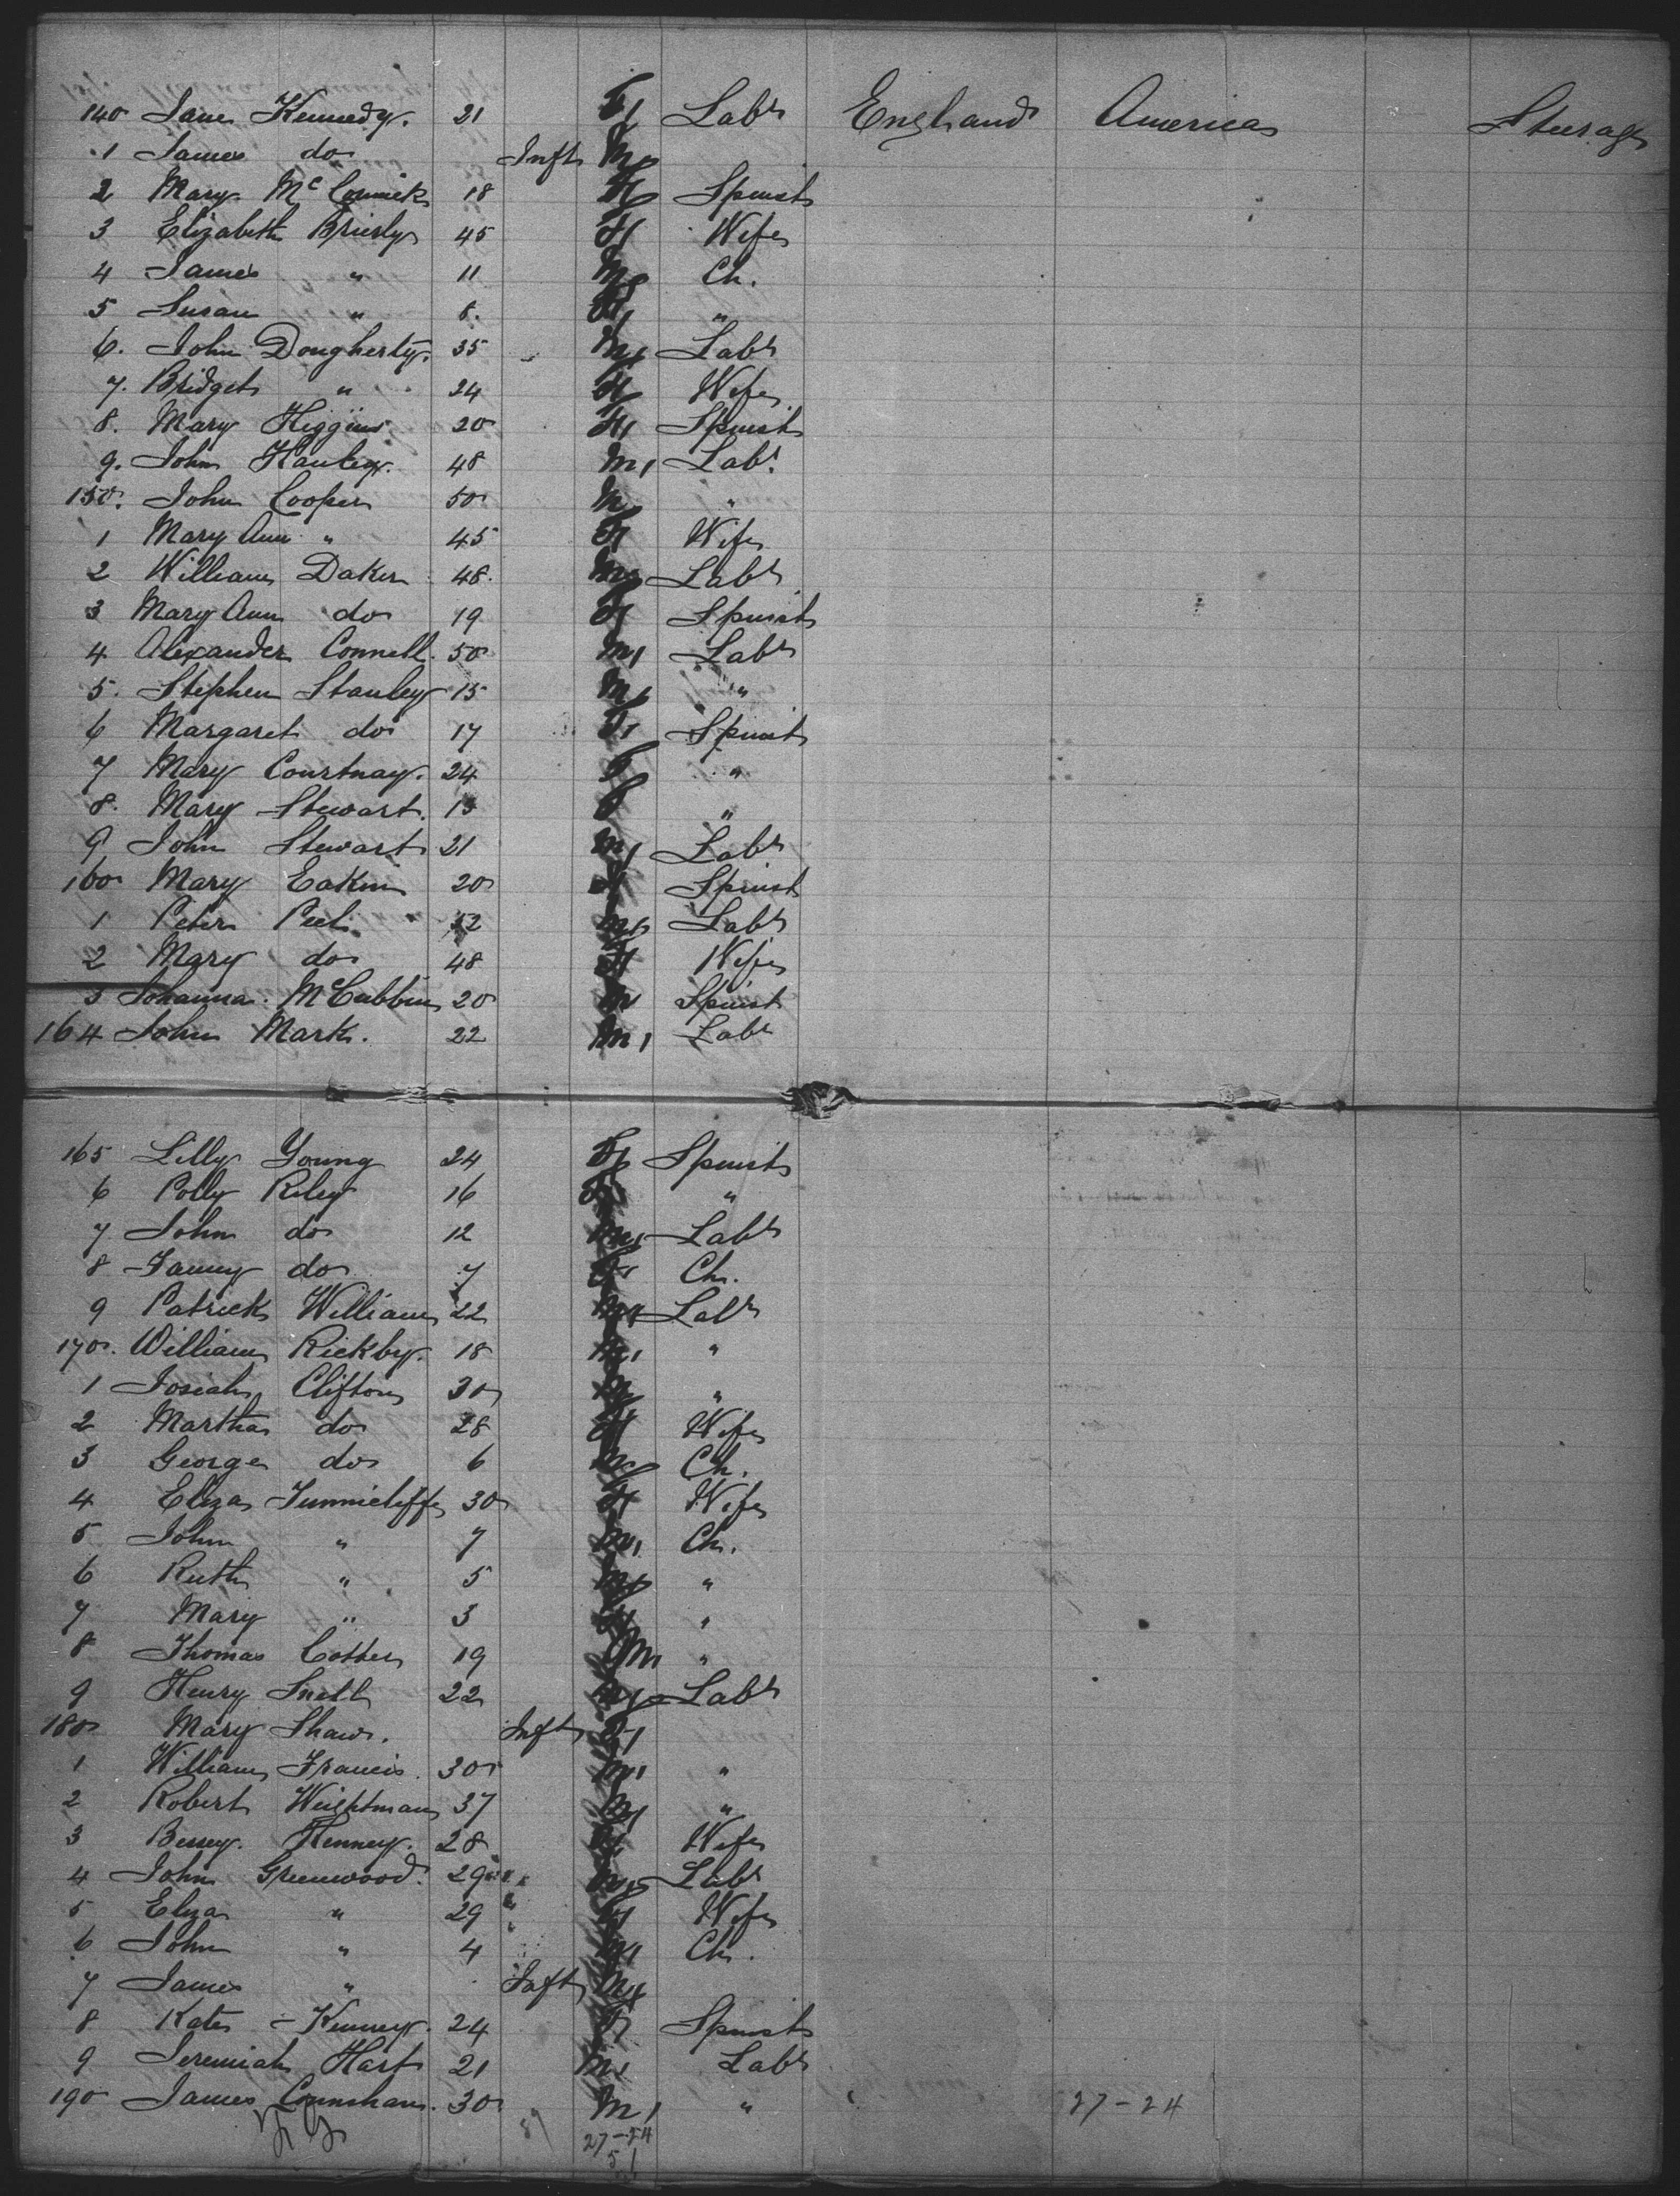 140 Jane Kennedy. 21 F Labr England America Steerage
1 James do Inft M
2 Mary McCormick 18 F Spinst
3 Elizabeth Brierly 45 F Wife
4 James " 11 M Ch.
5 Susan " 8. F "
6. John Dougherty. 35 M Labr
7. Bridget " 24 F Wife
8. Mary Higgins 20 F Spinst
9. John Hanley. 48 M Labr
150. John Cooper 50 M "
1 Mary Ann " 45 F Wife
2 William Daker 48. M Labr
3 Mary Ann do 19 F Spinst
4. Alexander Connell. 50 M Labr
5. Stephen Stanley 15 M "
6 Margaret do 17 F Spinst
7 Mary Courtnay. 24 F "
8. Mary Stewart. 13 F "
9 John Stewart 21 M Labr
160 Mary Eakin 20 F Spinst
1 Peter Peel 52 M Labr
2 Mary do 48 F Wife
3 Johanna McCubbin 20 Spinst
164 John Mark. 22 M Labr
165 Lilly Young 24 F Spinst
6 Polly Riley 16 F "
7 John do 12 M Labr
8 Fanny do 7 F Ch.
9 Patrick William 22 M Labr
170. William Rickby. 18 M "
1 Josiah Clifton 30 M "
2 Martha do 28 F Wife
3 George do 6 M Ch.
4 Eliza Tunnicliffe 30 F Wife
5 John " 7 M Ch.
6 Ruth " 5 "
7 Mary " 3 F "
8 Thomas Cotter 19 M "
9 Henry Snell 22 M Labr
180 Mary Shaw. Inft F
1 William Francis. 30 M "
2 Robert Weightman 37 M "
3 Bessey. Kenney. 28 F Wife
4 John Greenwood. 29 M Labr
5 Eliza " 29 F Wife
6 John " 4 M Ch.
7 James " Inft M
8 Kate Kenney. 24 F Spinst
9 Jeremiah Hart 21 M Labr
190 James Crunshaw. 30 M " 27-24
27-24
51